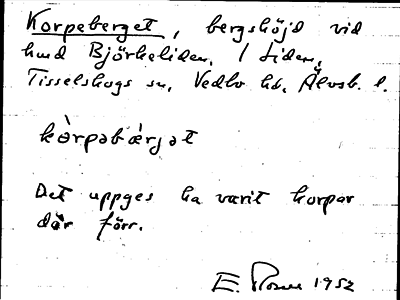 Korpeberget, bergshöjd vid
hmd Björkeliden, 1 Liden,
Tisselskogs sn, Vedbo hd, Älvsb. l.
kòrpəbæ̀rjət
Det uppges ha varit korpar
där förr.
E. 1952